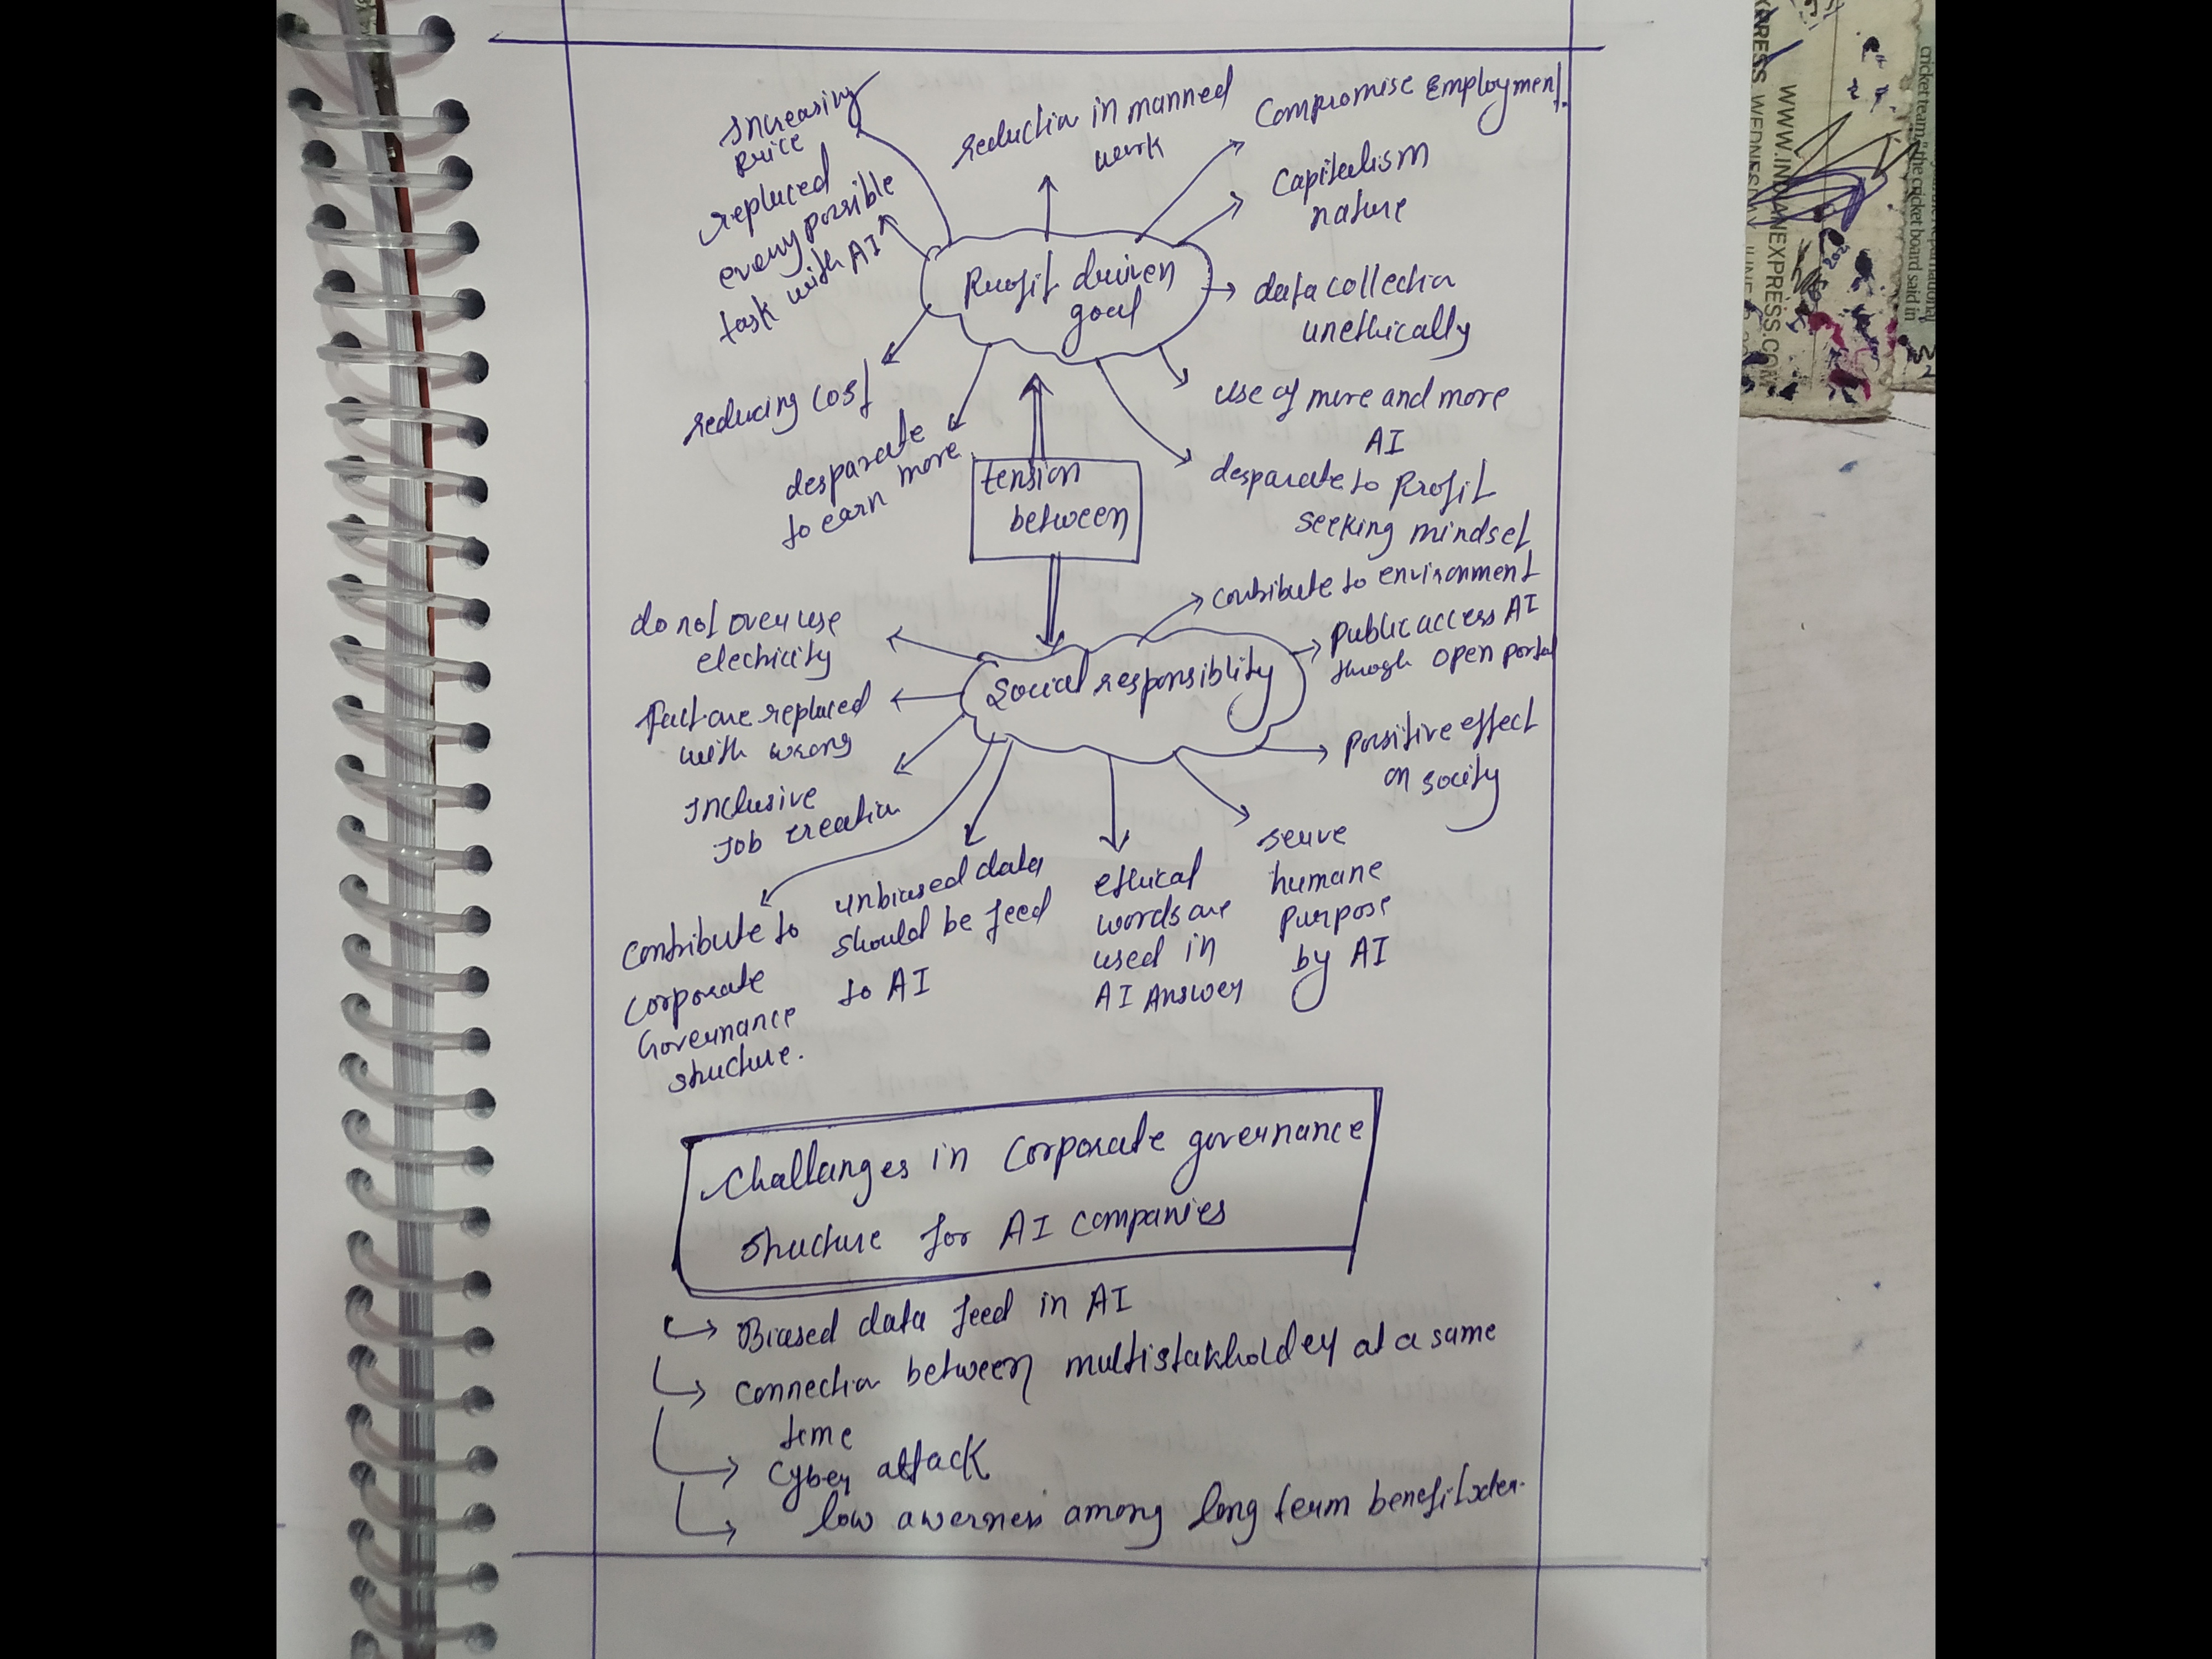 Increasing
Price
replaced
every possible
task with AI
reduction in manned
work
Compromise Employment.
Capitalism
nature
Profit driven
goal
data collection
unethically
reducing cost
desparate
to earn more
use of more and more
AI
desparate to Profit
seeking mindset
tension
between
contribute to environment
Public access AI
through open portal
do not over use
electricity
Social responsiblity
Fact are replaced
with wrong
positive effect
on socity
Inclusive
Job creation
serve
humane
purpose
by AI
unbiased data
should be feed
to AI
ethical
words are
used in
AI Answer
contribute to
corporate
Governance
structure.
Challanges in Corporate governance
structure for AI companies
Biased data feed in AI
Connection between multistakholder at a same
time
Cyber attack
low awerness among long term benefit
XPRESS WEDNESDAY JUNE
WWW.INDIANEXPRESS.COM
cricket team," the cricket board said in